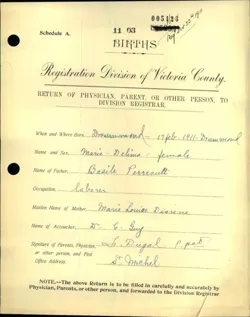 005126
Schedule A.
11 03
BIRTHS
Registration Division of Victoria County.
RETURN OF PHYSICIAN, PARENT, OR OTHER PERSON, TO
DIVISION REGISTRAR.
What and Where Born, Drummond - 17 feb. 1911. Drummond
Name and Sex, Marie - Delina - female
Name of Father, Basile Perreault
Occupation, laborer
Maiden Name of Mother, Marie Louise
Name of Accoucher, Dr. E. Guy
Signature of Parents, Physician, P. pst
or other person, and Post
Office Address St. Michel
NOTE.—The above Return is to be filled in carefully and accurately by
Physician, Parents, or other person, and forwarded to the Division Registrar